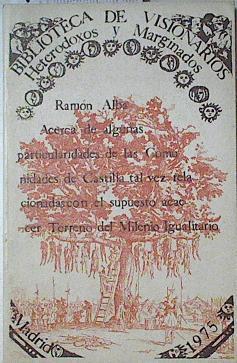 BIBLIOTECA DE VISIONARIOS
Heterodoxos y Marginados
Ramón Alba
Acerca de algunas
particularidades de las Comu
nidades de Castilla tal vez rela
cionadas con el supuesto acae
cer Terreno del Milenio Igualitario
Madrid
1975